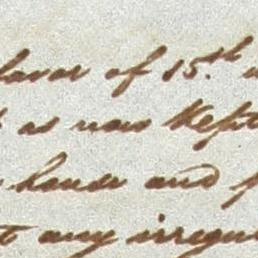 favor of 15.th
as now kept
hands and
any irregu